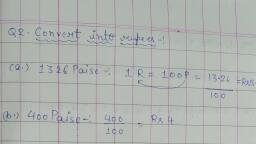 Q2. Convert into rupees-:
(a.) 1326 Paise-: 1 R = 100P = 13.26/100 =
(b.) 400 Paise-: 400/100 = Rs 4